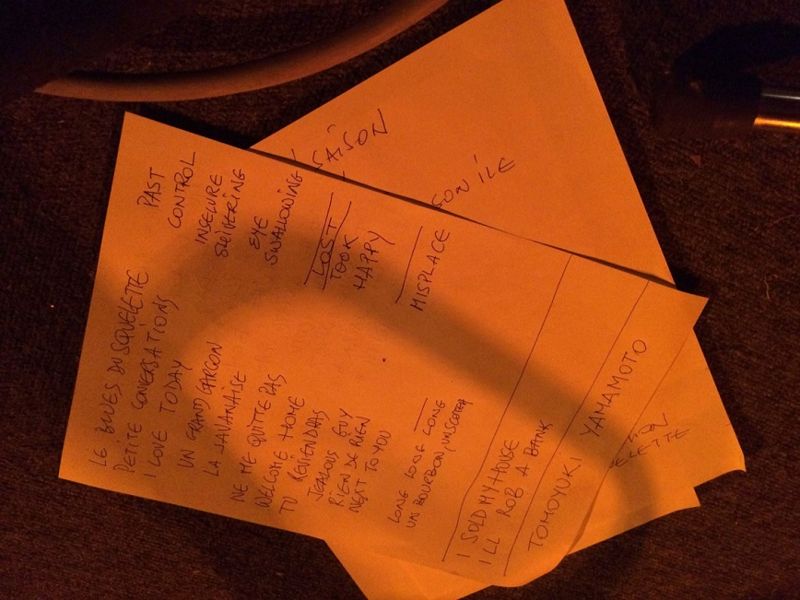 LE BLUES DU SQUELETTE
PETITE CONVERSATIONS
I LOVE TODAY
UN GRAND GARCON
LA JAVANAISE
NE ME QUITTE PAS
WELCOME HOME
TU REVIENDRAS
JEALOUS GUY
RIEN DE RIEN
NEXT TO YOU
LONG LONG LONG
UN BOURBON, UN SCOTCH
PAST
CONTROL
INSECURE
EYE
SWALLOWING
LOST
TOOK
HAPPY
MISPLACE
I SOLD MY HOUSE
ILL ROB A BANK
TOMOYUKI YAMAMOTO
SAÏSON
SON ILE
ELETTE